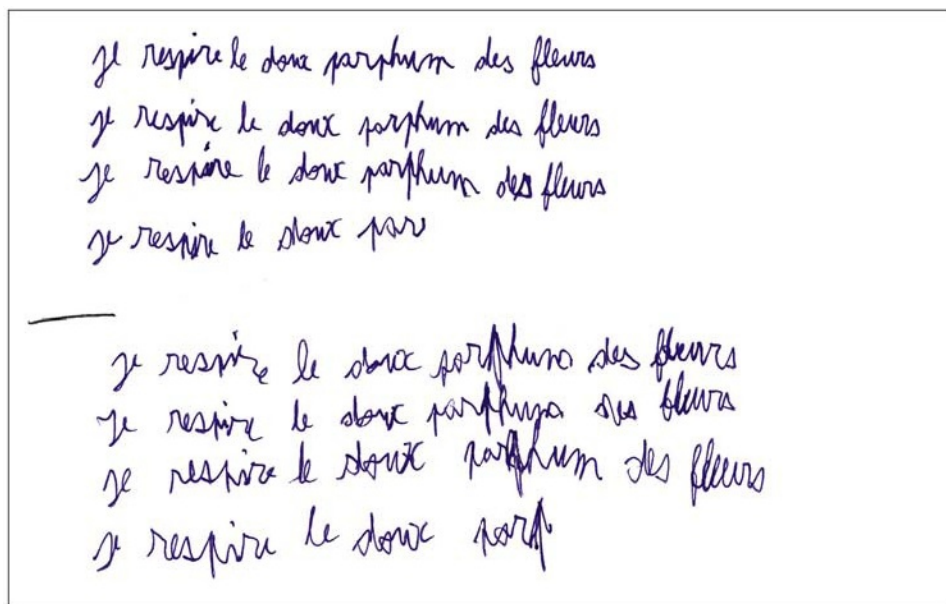 je respire le doux parphum des fleurs
je respire le doux parphum des fleurs
je respire le doux parphum des fleurs
je respire le doux par
je respire le doux parphum des fleurs
je respire le doux parphum des fleurs
je respire le doux parphum des fleurs
je respire le doux parp